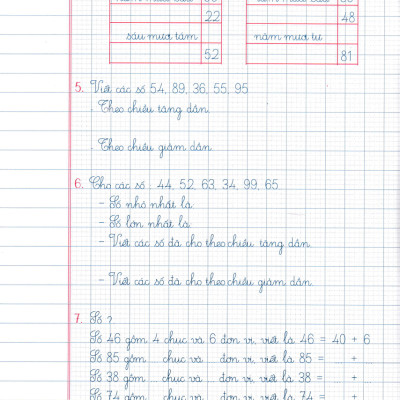 22
48
sáu mươi tám
năm mươi tư
52
81
5. Viết các số 54, 89, 36, 55, 95
. Theo chiều tăng dần
. Theo chiều giảm dần
6. Cho các số : 44, 52, 63, 34, 99, 65
- Số nhỏ nhất là
- Số lớn nhất là
- Viết các số đã cho theo chiều tăng dần
- Viết các số đã cho theo chiều giảm dần
7. Số ?
Số 46 gồm 4 chục và 6 đơn vị, viết là 46 = 40 + 6
Số 85 gồm chục và đơn vị, viết là 85 = +
Số 38 gồm chục và đơn vị, viết là 38 = +
Số 74 gồm chục và đơn vị, viết là 74 = +